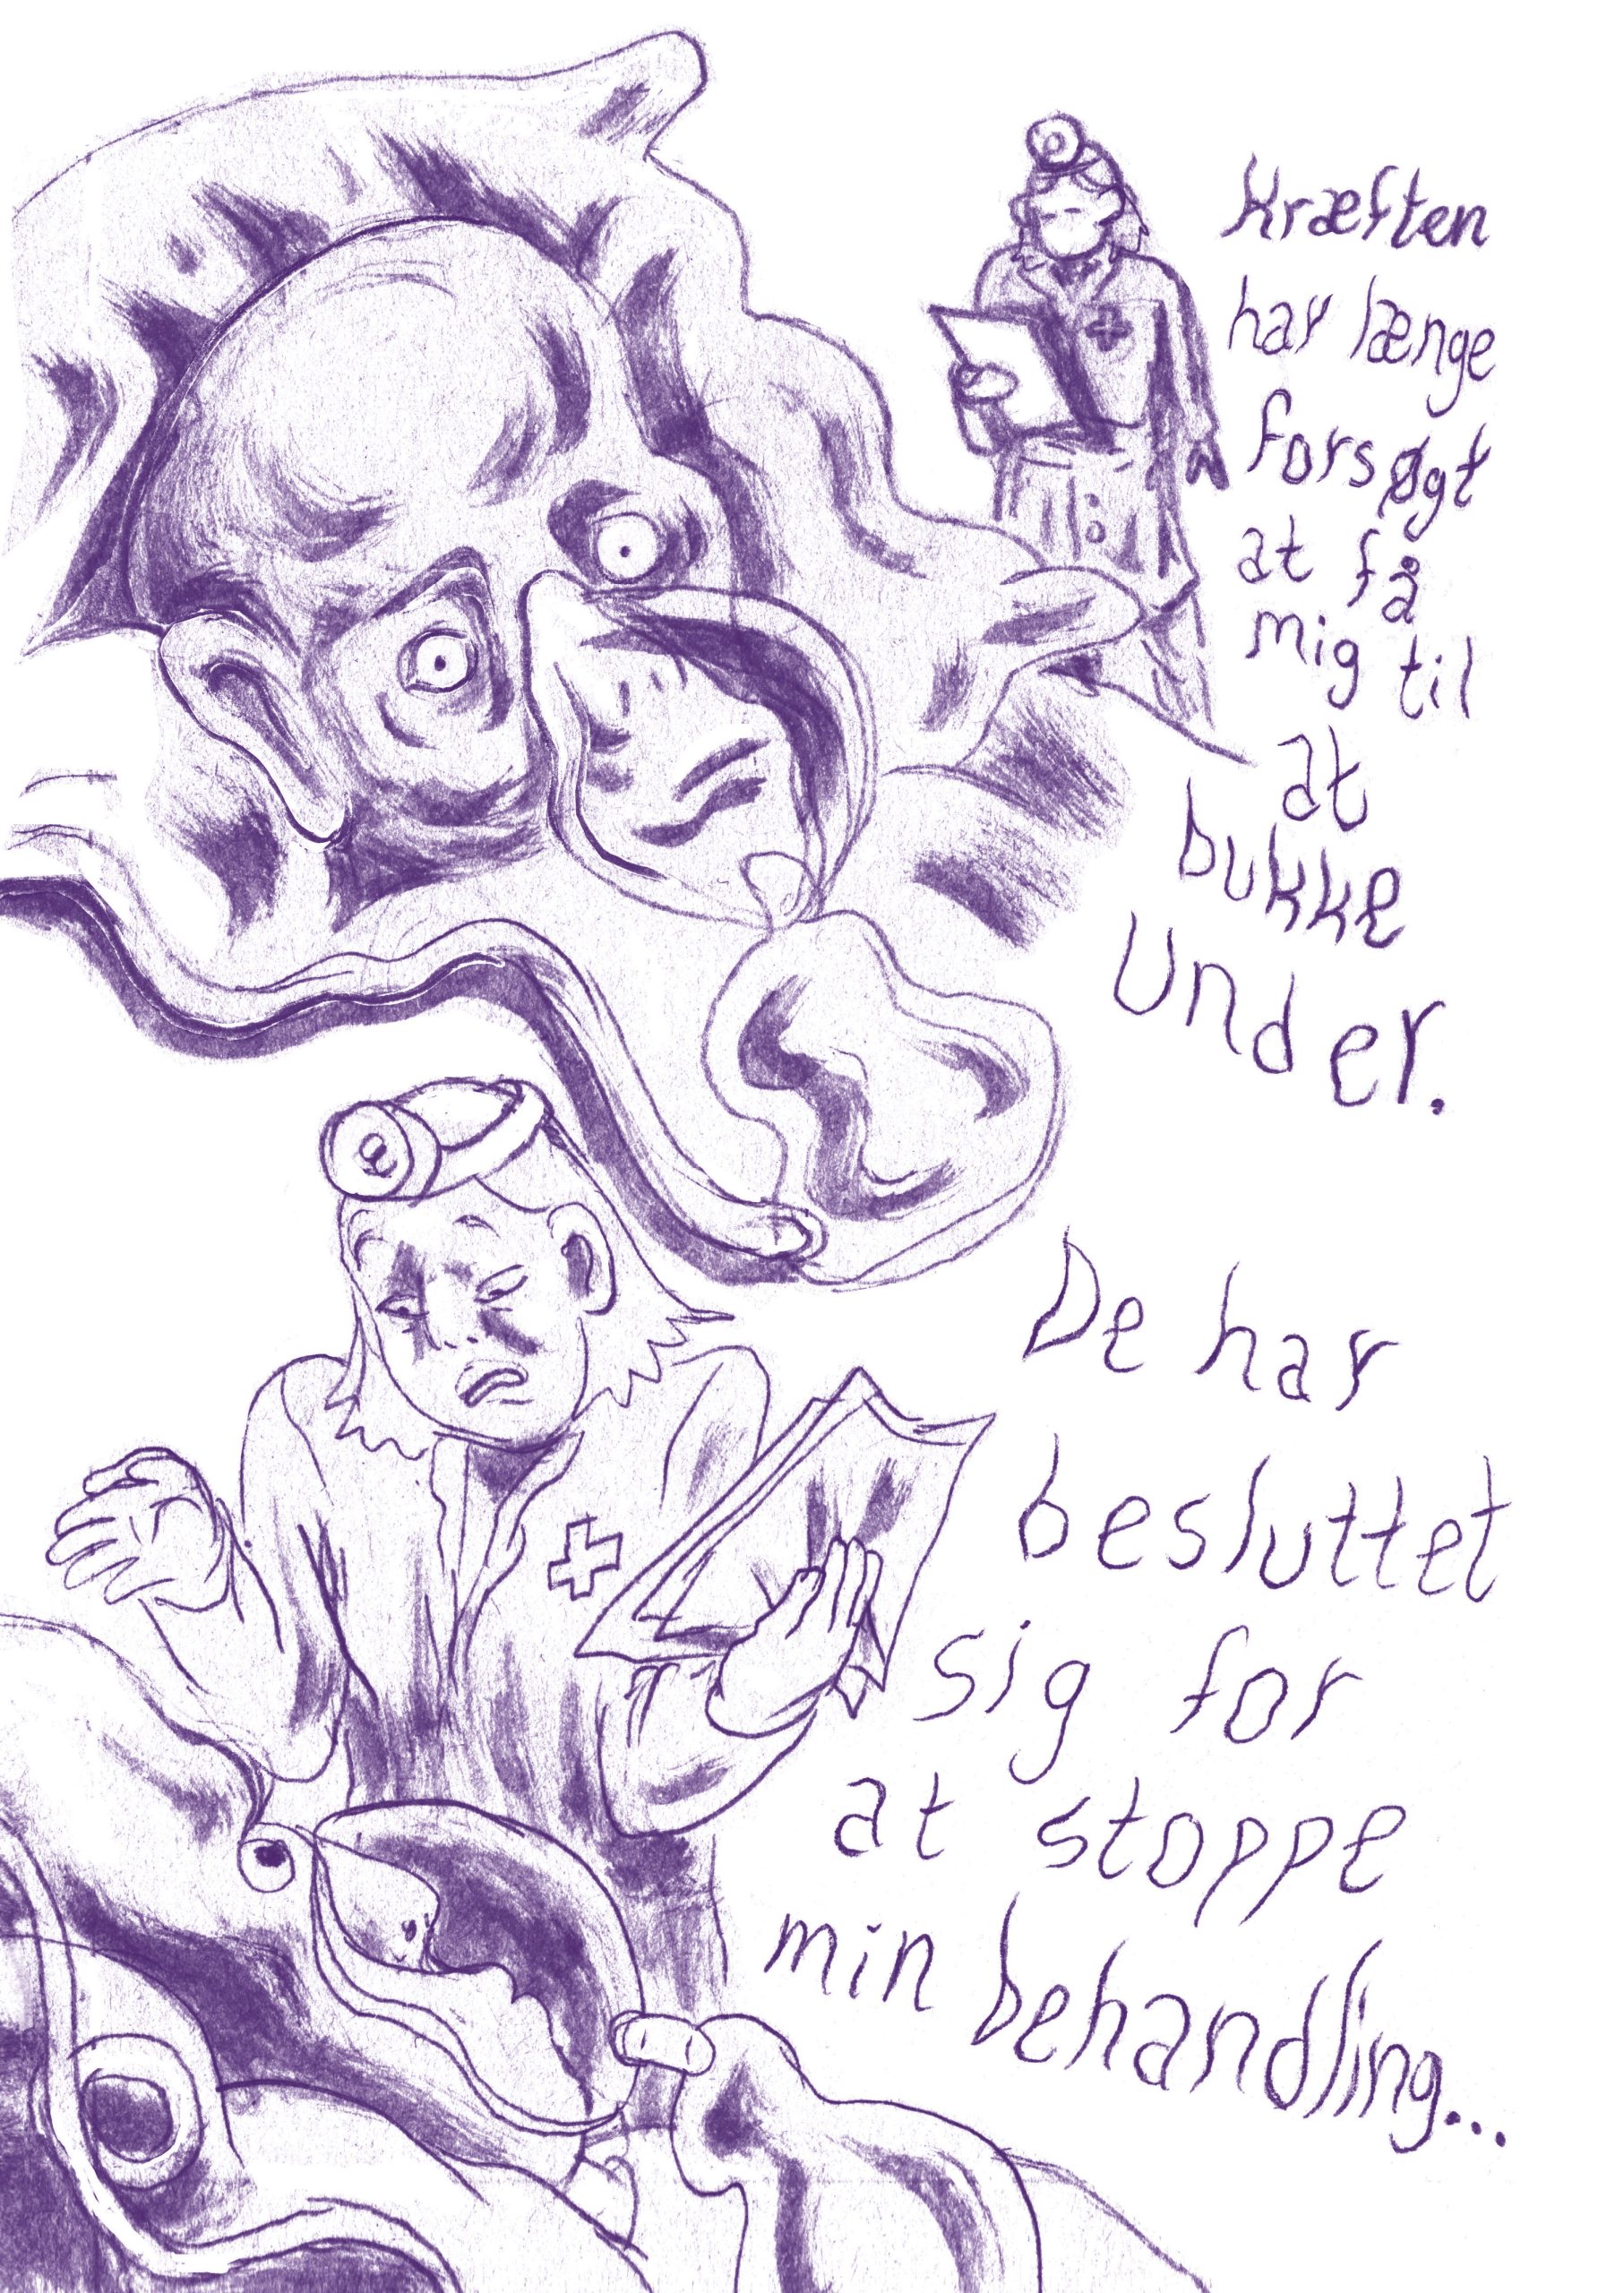 Kræften
har længe
forsøgt
at få
mig til
at
bukke
Under.
De har
besluttet
sig for
at stoppe
min behandling...